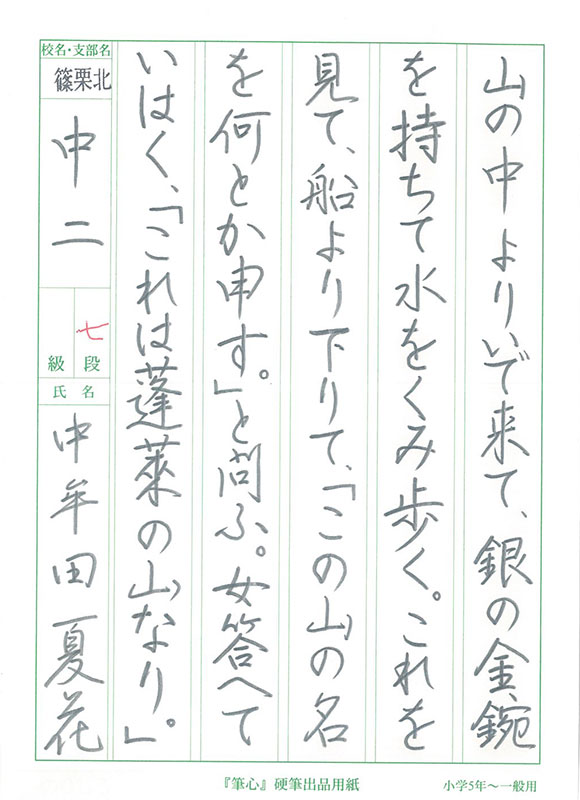 山の中よりいで来て、銀の金鋺
を持ちて水をくみ歩く。これを
見て、船より下りて、「この山の名
を何とか申す。」と問ふ。女答へて
いはく、「これは蓬萊の山なり。」
校名・支部名
篠栗北
中二
七段
級
氏名
中牟田夏花
『筆心』硬筆出品用紙
小学5年～一般用